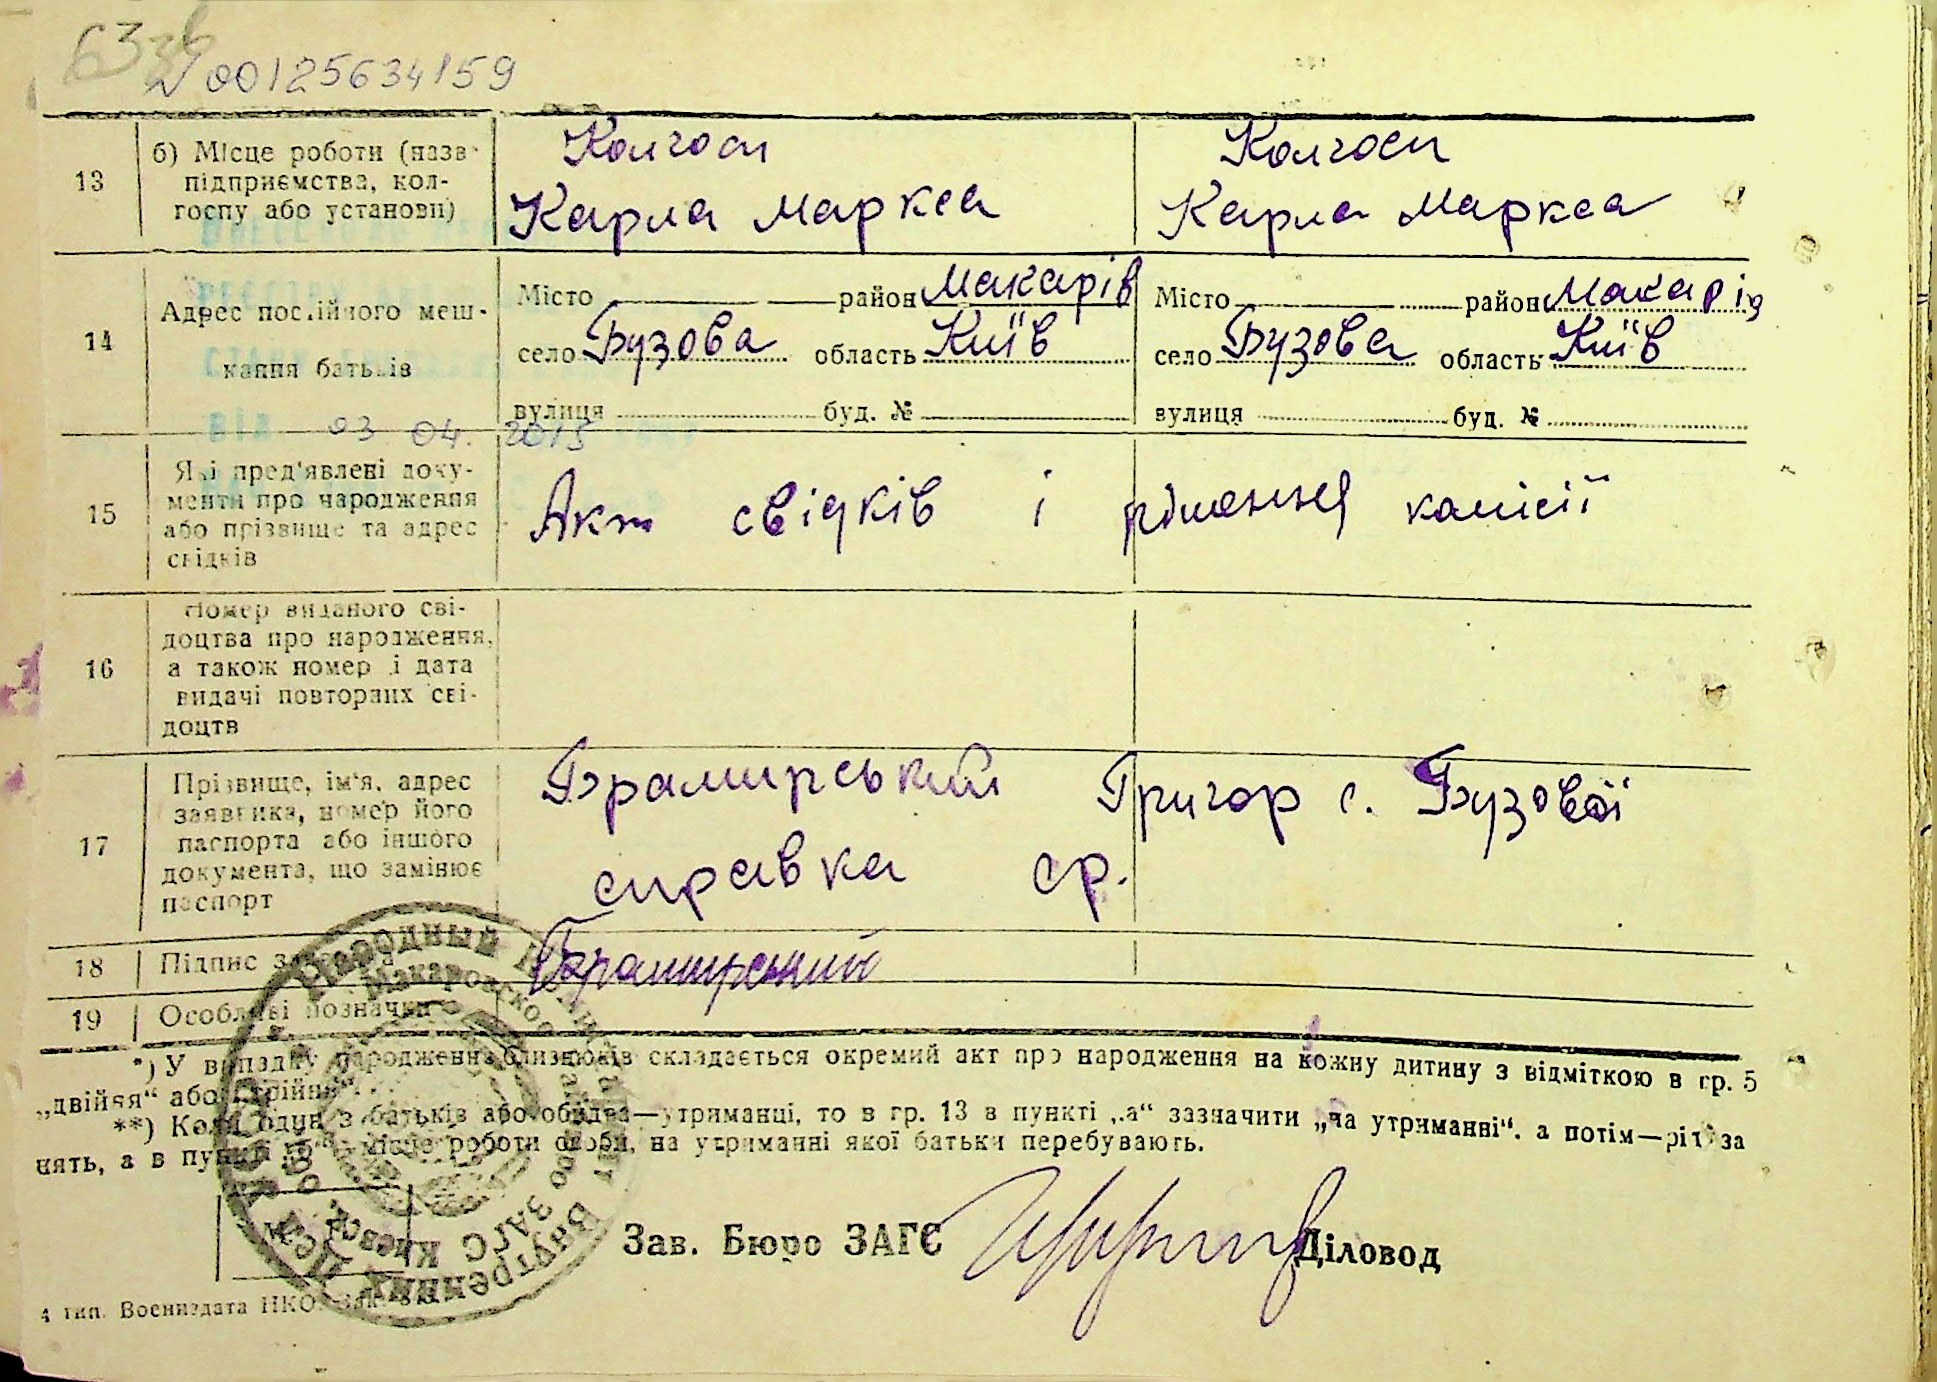 63 зв
№ 00125634159
13
б) Місце роботи (назв
підприємства, кол-
госпу або установи)
Колгосп
Карла Маркса
Колгосп
Карла Маркса
14
Адрес постійного меш-
кання батьків
Місто район Макарів
село Бузова область Київ
вулиця буд. №
Місто район Макарів
село Бузова область Київ
вулиця буд. №
від 03 04. 2015
15
Які пред'явлені доку-
менти про народження
або прізвище та адрес
свідків
Акт свідків і рішення комісії
16
Номер виданого сві-
доцтва про народження,
а також номер і дата
видачі повторних сві-
доцтв
17
Прізвище, ім'я, адрес
заявника, номер його
паспорта або іншого
документа, що замінює
паспорт
Брамирський Григор с. Бузової
справка ср.
18
Підпис заявника
Брамирський
19
Особливі позначки
*) У випадку народження близнюків складається окремий акт про народження на кожну дитину з відміткою в гр. 5
„двійня“ або „трійня“.
**) Коли один з батьків або обидва—утриманці, то в гр. 13 в пункті „а“ зазначити „на утриманні“, а потім—рід за
нять, а в пункті „б“ місце роботи особи, на утриманні якої батьки перебувають.
Народный Комиссариат Внутренних Дел
Макаровское бюро ЗАГС Киевск. обл.
Зав. Бюро ЗАГС
Діловод
4 тип. Воениздата НКО.